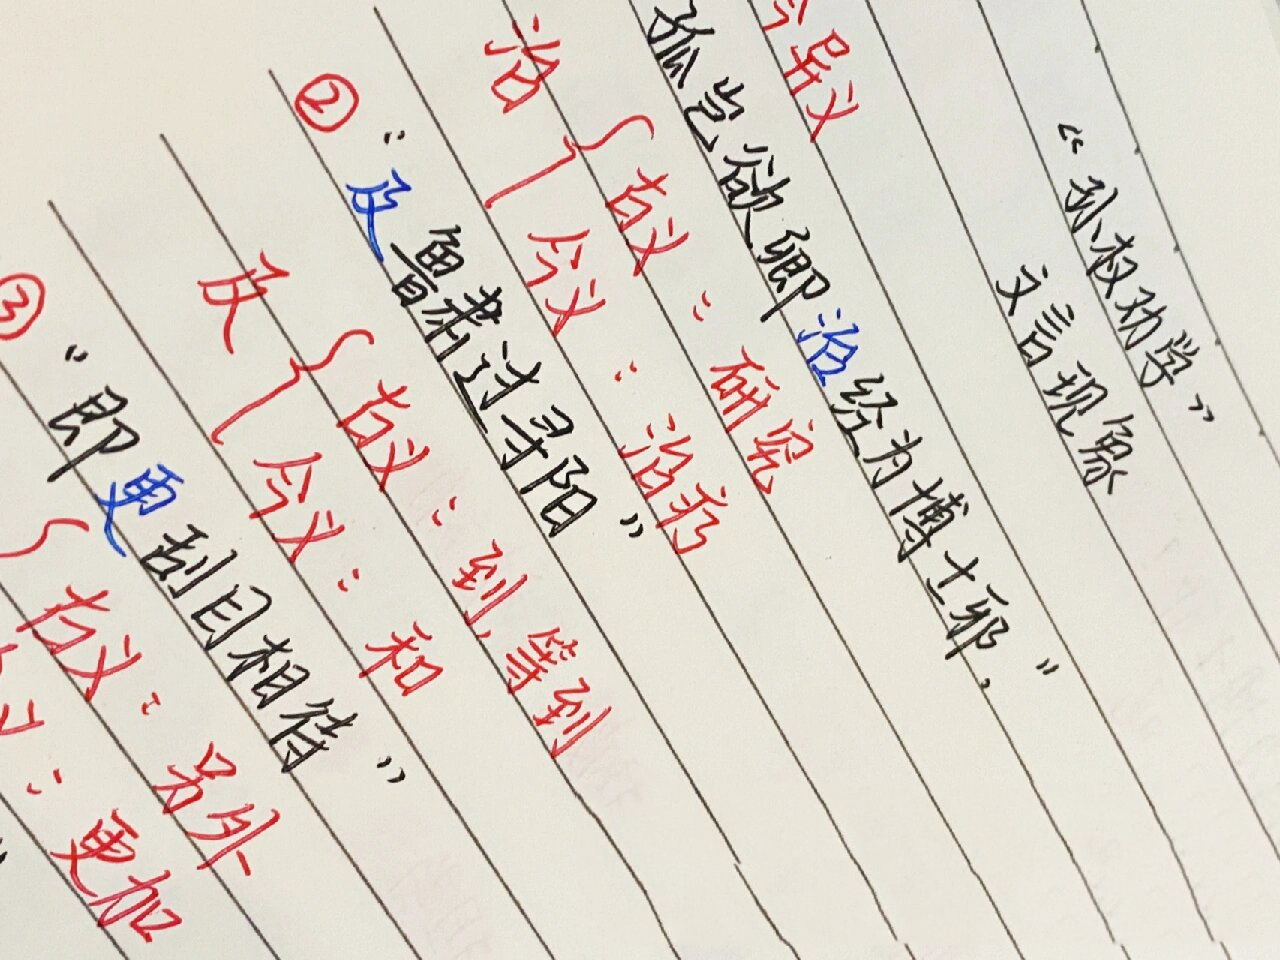 “孙权劝学”
文言现象
今异义
孤岂欲卿治经为博士邪.”
古义：研究
治
今义：治疗
② “及鲁肃过寻阳”
古义：到,等到
及
今义：和
③ “即更刮目相待”
古义：另外
义：更加